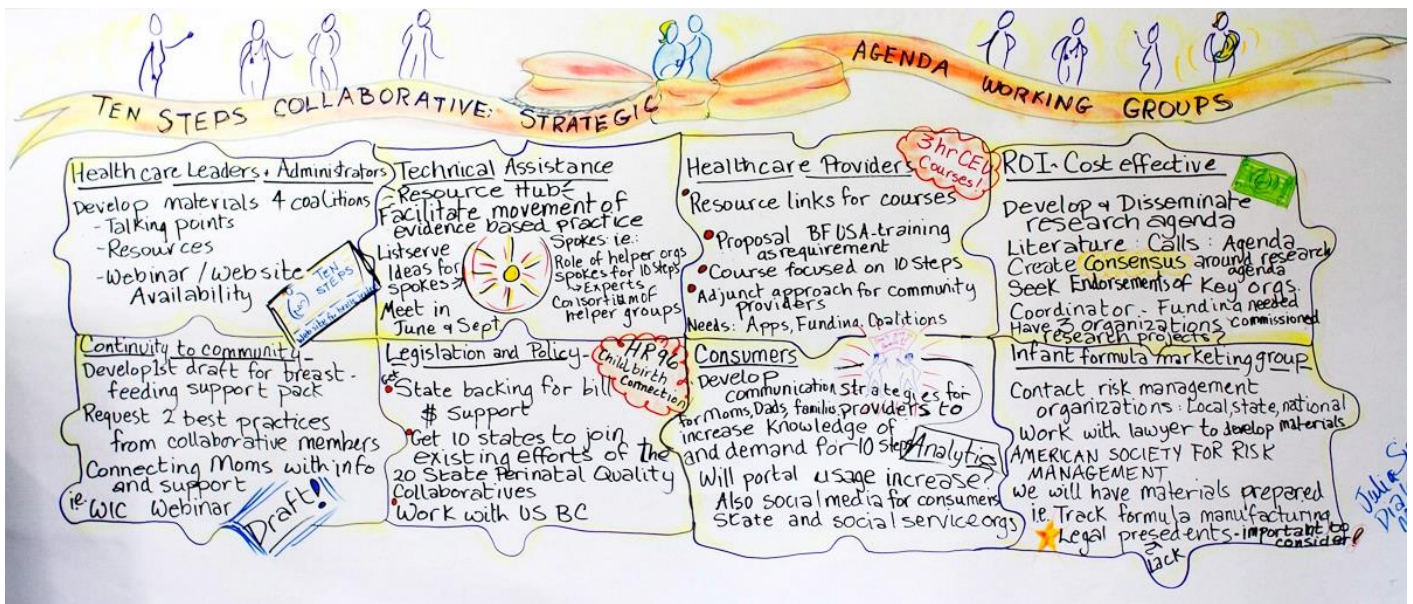 TEN STEPS COLLABORATIVE: STRATEGIC
AGENDA WORKING GROUPS
Healthcare Leaders + Administrators
Develop materials 4 coalitions
- Talking points
- Resources
- Webinar / Website
Availability
TEN
STEPS
Technical Assistance
- Resource Hub
Facilitate movement of
evidence based practice
Listserve
Ideas for
spokes
Meet in
June & Sept
Spokes: i.e.:
Role of helper orgs
spokes for 10 steps
Experts
Consortium of
helper groups
Healthcare Providers
3 hr CEU
Courses!
Resource links for courses
Proposal BFUSA-training
as requirement
Course focused on 10 Steps
Adjunct approach for community
providers
Needs: Apps, Funding, Coalitions
ROI - Cost effective
Develop & Disseminate
research agenda
Literature : Calls : Agenda
Create Consensus around research
agenda
Seek Endorsements of Key orgs.
Coordinator - Funding needed
Have 3 organizations commissioned
research projects?
Continuity to community -
Develop 1st draft for breast-
feeding support pack
Request 2 best practices
from collaborative members
Connecting Moms with info
and support
ie: WIC Webinar
Draft!
Legislation and Policy -
HR 96
Childbirth
Connection
Get
State backing for bill
$ Support
Get 10 states to join
existing efforts of the
20 State Perinatal Quality
Collaboratives
Work with US BC
Consumers
Develop
communication strategies for
for Moms, Dads, families, providers to
increase knowledge of
and demand for 10 Steps
Analytics
Will portal usage increase?
Also social media for consumers
State and social service orgs
Infant formula marketing group
Contact risk management
organizations: Local, state, national
Work with lawyer to develop materials
AMERICAN SOCIETY FOR RISK
MANAGEMENT
We will have materials prepared
ie. Track formula manufacturing
Legal presedents - important to
consider!
Lack
Julia